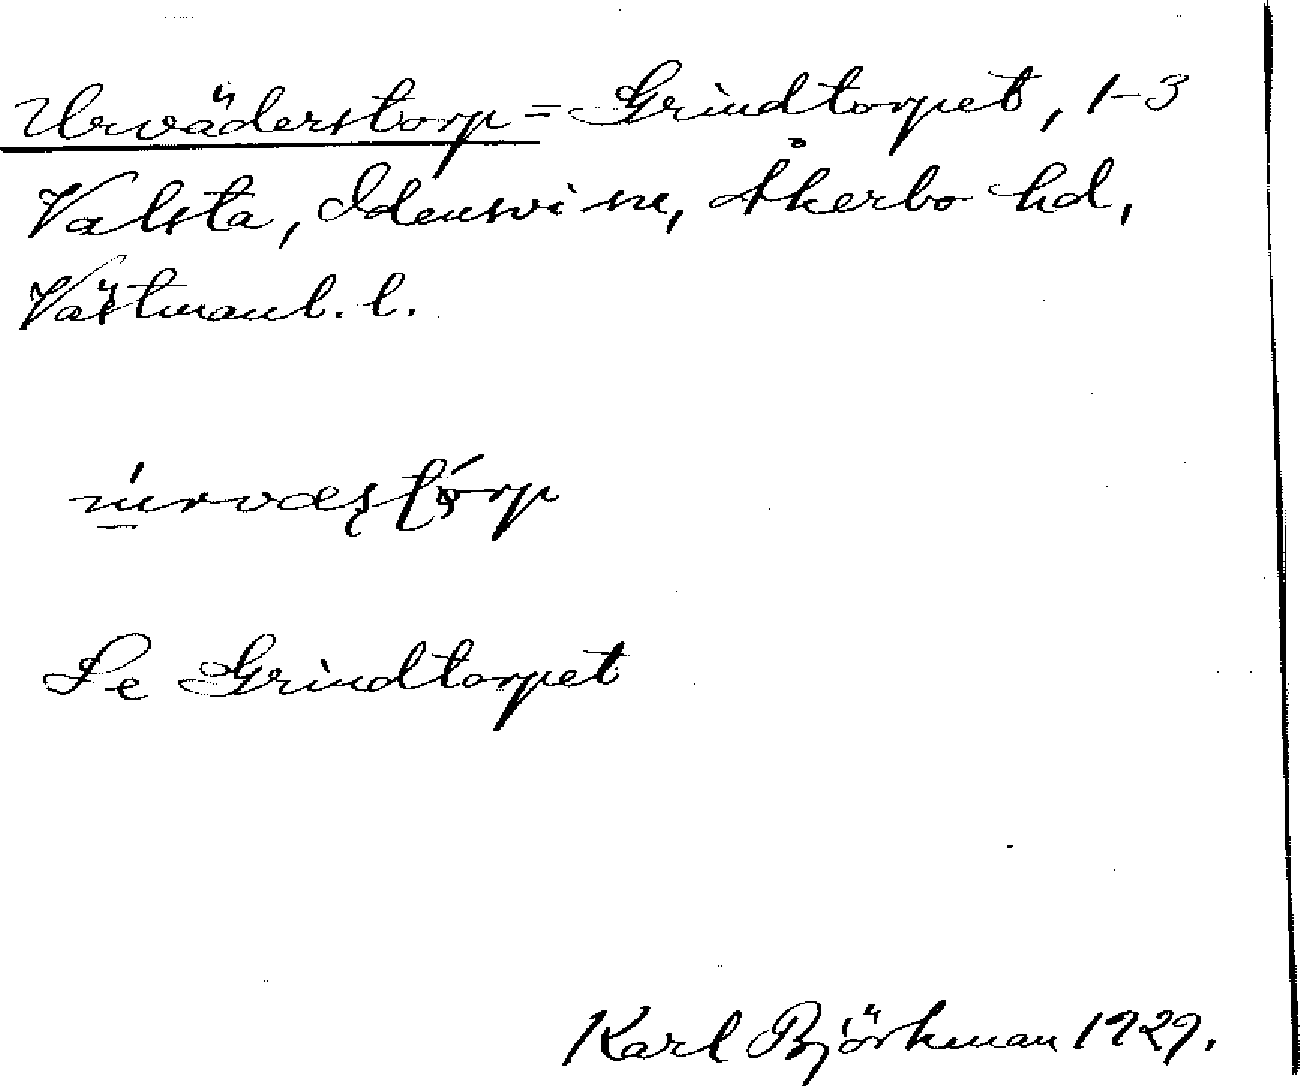 Urväderstorp = Grindtorpet, 1-3
Valsta, Odensvi sn, Åkerbo hd,
Västmanl. l.
Se Grindtorpet
Karl Björkman 1929.